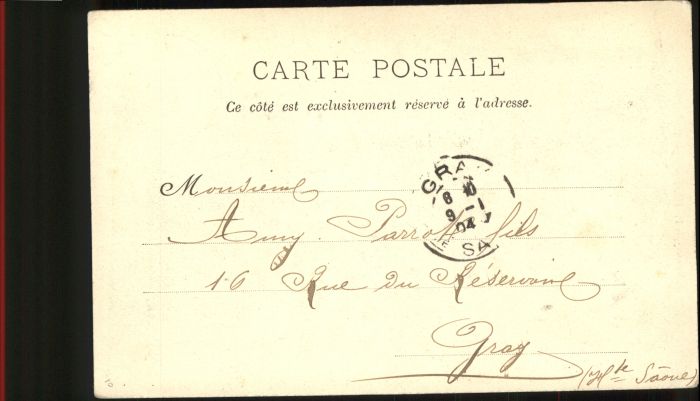 CARTE POSTALE
Ce côté est exclusivement réservé à l'adresse.
Monsieur
Amy Parrot fils
16 Rue du Réservoir
Gray
(Hte Saône)
GRA
8
9 -1
04
SA